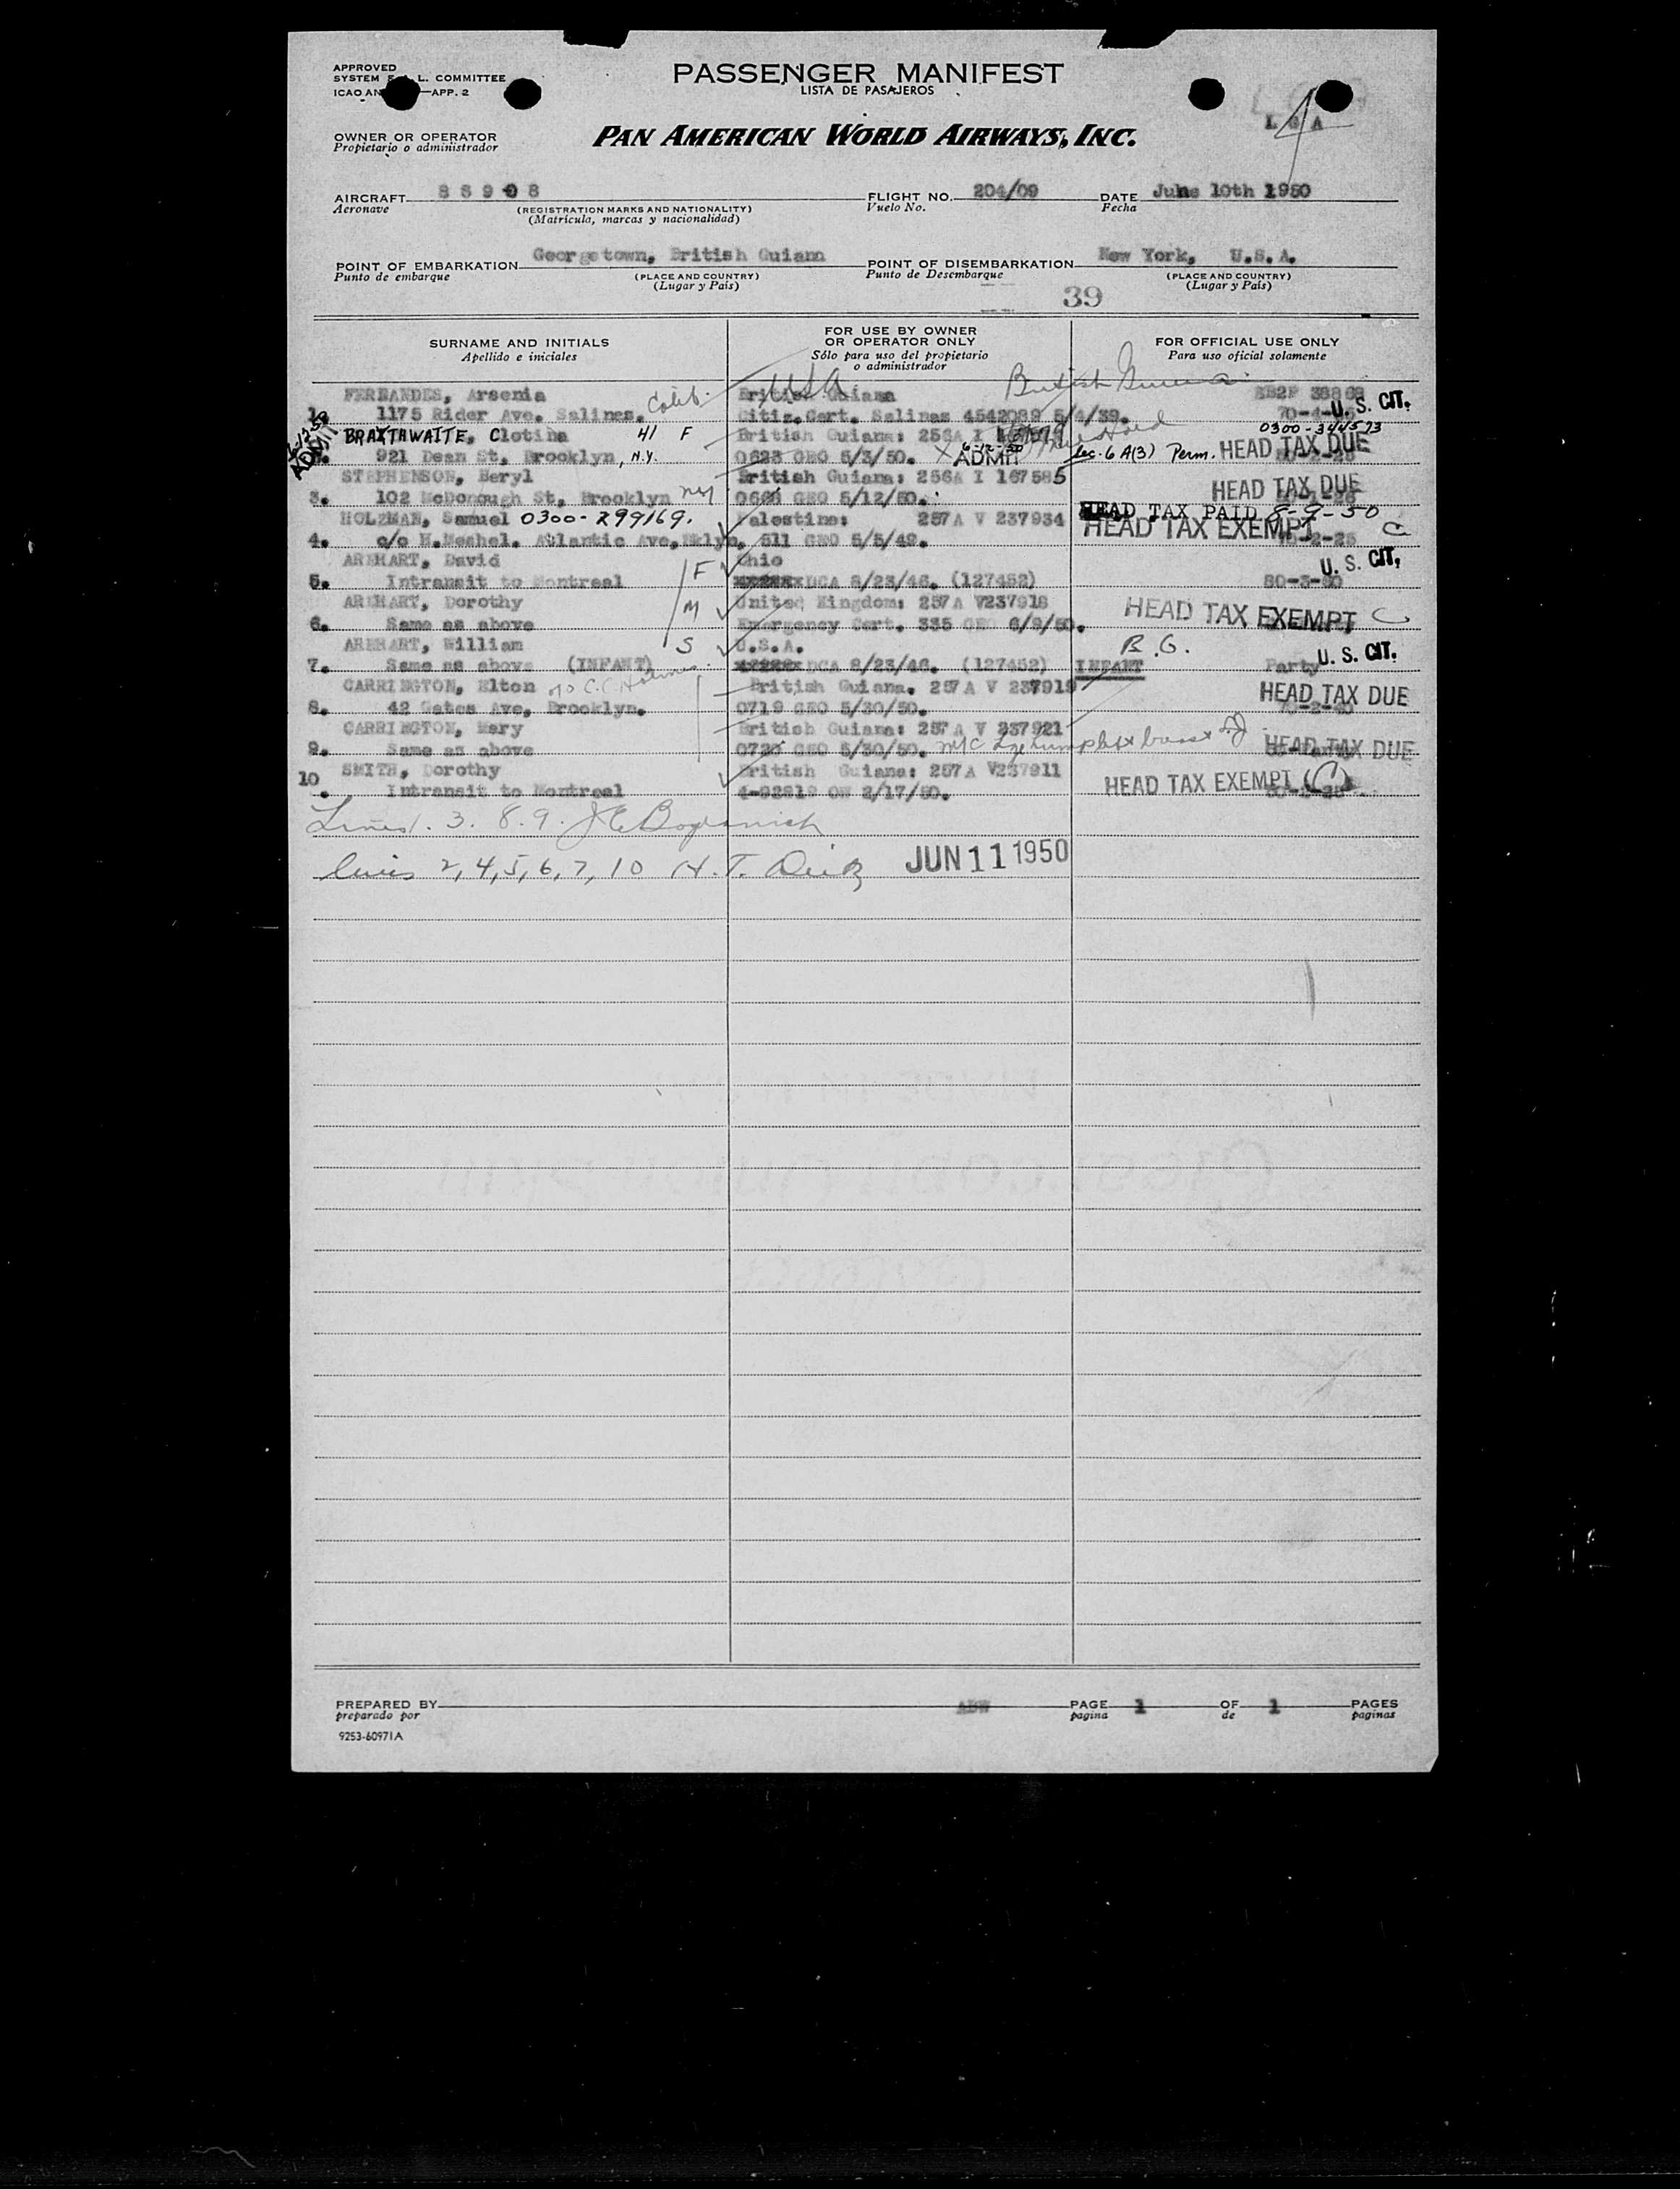 APPROVED
SYSTEM F. A. L. COMMITTEE
ICAO AN —APP. 2
PASSENGER MANIFEST
LISTA DE PASAJEROS
L G A
4
OWNER OR OPERATOR
Propietario o administrador
PAN AMERICAN WORLD AIRWAYS, INC.
AIRCRAFT 88908 FLIGHT NO. 204/09 DATE June 10th 1950
Aeronave (REGISTRATION MARKS AND NATIONALITY) Vuelo No. Fecha
(Matrícula, marcas y nacionalidad)
POINT OF EMBARKATION Georgetown, British Guiana POINT OF DISEMBARKATION New York, U.S.A.
Punto de embarque (PLACE AND COUNTRY) Punto de Desembarque (PLACE AND COUNTRY)
(Lugar y País) (Lugar y País)
39
SURNAME AND INITIALS FOR USE BY OWNER OR OPERATOR ONLY FOR OFFICIAL USE ONLY
Apellido e iniciales Sólo para uso del propietario o administrador Para uso oficial solamente
FERNANDES, Arsenia Calif. British Guiana USA British Guiana
1. 1175 Rider Ave. Salinas, Citiz.Cert. Salinas 4542089 5/4/39. U. S. CIT.
BRAITHWAITE, Clotina 41 F British Guiana: 256A I 0300-344573
921 Dean St, Brooklyn, N.Y. 0623 GEO 5/3/50. X ADMIT Sec. 6 A(3) Perm. HEAD TAX DUE
STEPHENSON, Beryl British Guiana: 256A I 167585
3. 102 McDonough St, Brooklyn NY 0668 GEO 5/12/50. HEAD TAX DUE
HOLZMAN, Samuel 0300-299169. Palestine: 257A V 237934 HEAD TAX PAID 8-9-50
4. c/o H.Meshel. Atlantic Ave, Bklyn, 511 GEO 5/5/49. HEAD TAX EXEMPT C
AREHART, David F Ohio U. S. CIT.
5. Intransit to Montreal DCA 8/23/46. (127452) 80-3-50
AREHART, Dorothy M United Kingdom: 257A V237918
6. Same as above Emergency Cert. 335 GEO 6/9/50. HEAD TAX EXEMPT C
AREHART, William S U.S.A. B.G.
7. Same as above (INFANT) DCA 8/23/46. (127452) INFANT Party U. S. CIT.
CARRINGTON, Elton British Guiana. 257A V 237919 HEAD TAX DUE
8. 42 Gates Ave, Brooklyn. 0719 GEO 5/30/50.
CARRINGTON, Mary British Guiana: 257A V 237921
9. Same as above 0720 GEO 5/30/50. HEAD TAX DUE
SMITH, Dorothy British Guiana: 257A V237911
10. Intransit to Montreal 4-92812 OW 2/17/50. HEAD TAX EXEMPT C
Lines 1. 3. 8. 9.
lines 2, 4, 5, 6, 7, 10 H. T. JUN 11 1950
PREPARED BY PAGE 1 OF 1 PAGES
preparado por pagina de paginas
9253-60971A